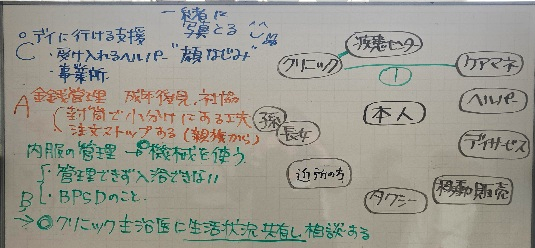 一緒に
写真とる
○デイに行ける支援
C ・受け入れるヘルパー "顔なじみ"
・事業所
A 金銭管理 成年後見、社協
封筒で小分けにする工夫
注文ストップする(親族から)
内服の管理 → 機械を使う
・管理できず入浴できない
B ・BPSDのこと
→ クリニック主治医に生活状況共有し相談する
クリニック
ケアマネ
①
ヘルパー
本人
孫
長女
デイサービス
近所の方
タクシー
移動販売